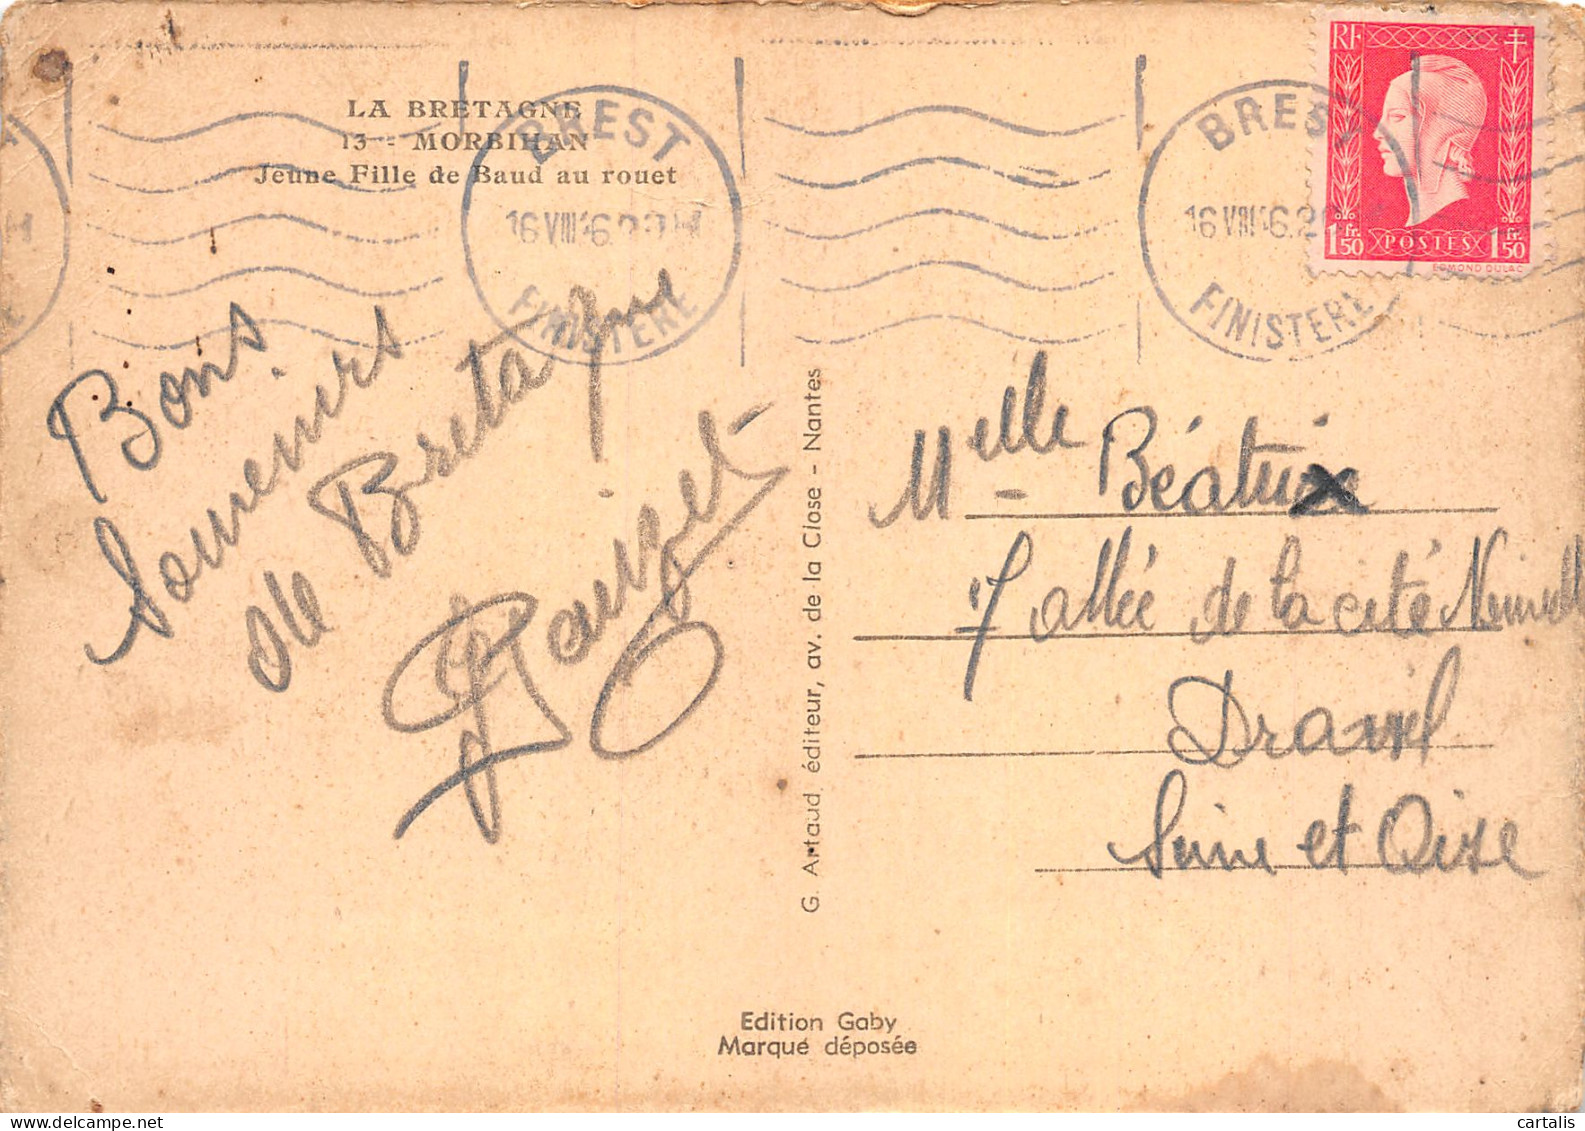 LA BRETAGNE
13 - MORBIHAN
Jeune Fille de Baud au rouet
BREST
FINISTERE
BREST
16 VIII
FINISTERE
RF
1 Fr. 50 POSTES 1 Fr. 50
EDMOND DULAC
Bons
Souvenirs
de Bretagne
G. Artaud, éditeur, av. de la Close - Nantes
Melle - Béatrix
7 allée de la cité
Draveil
Seine et Oise
Edition Gaby
Marque déposée
cartalis